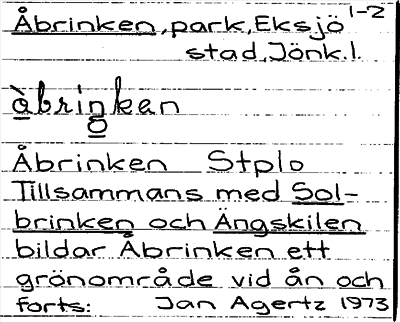 Åbrinken, park, Eksjö 1-2
stad, Jönk.l.
åbrinken
Åbrinken Stplo
Tillsammans med Sol-
brinken och Ängskilen
bildar Åbrinken ett
grönområde vid ån och
forts: Jan Agertz 1973